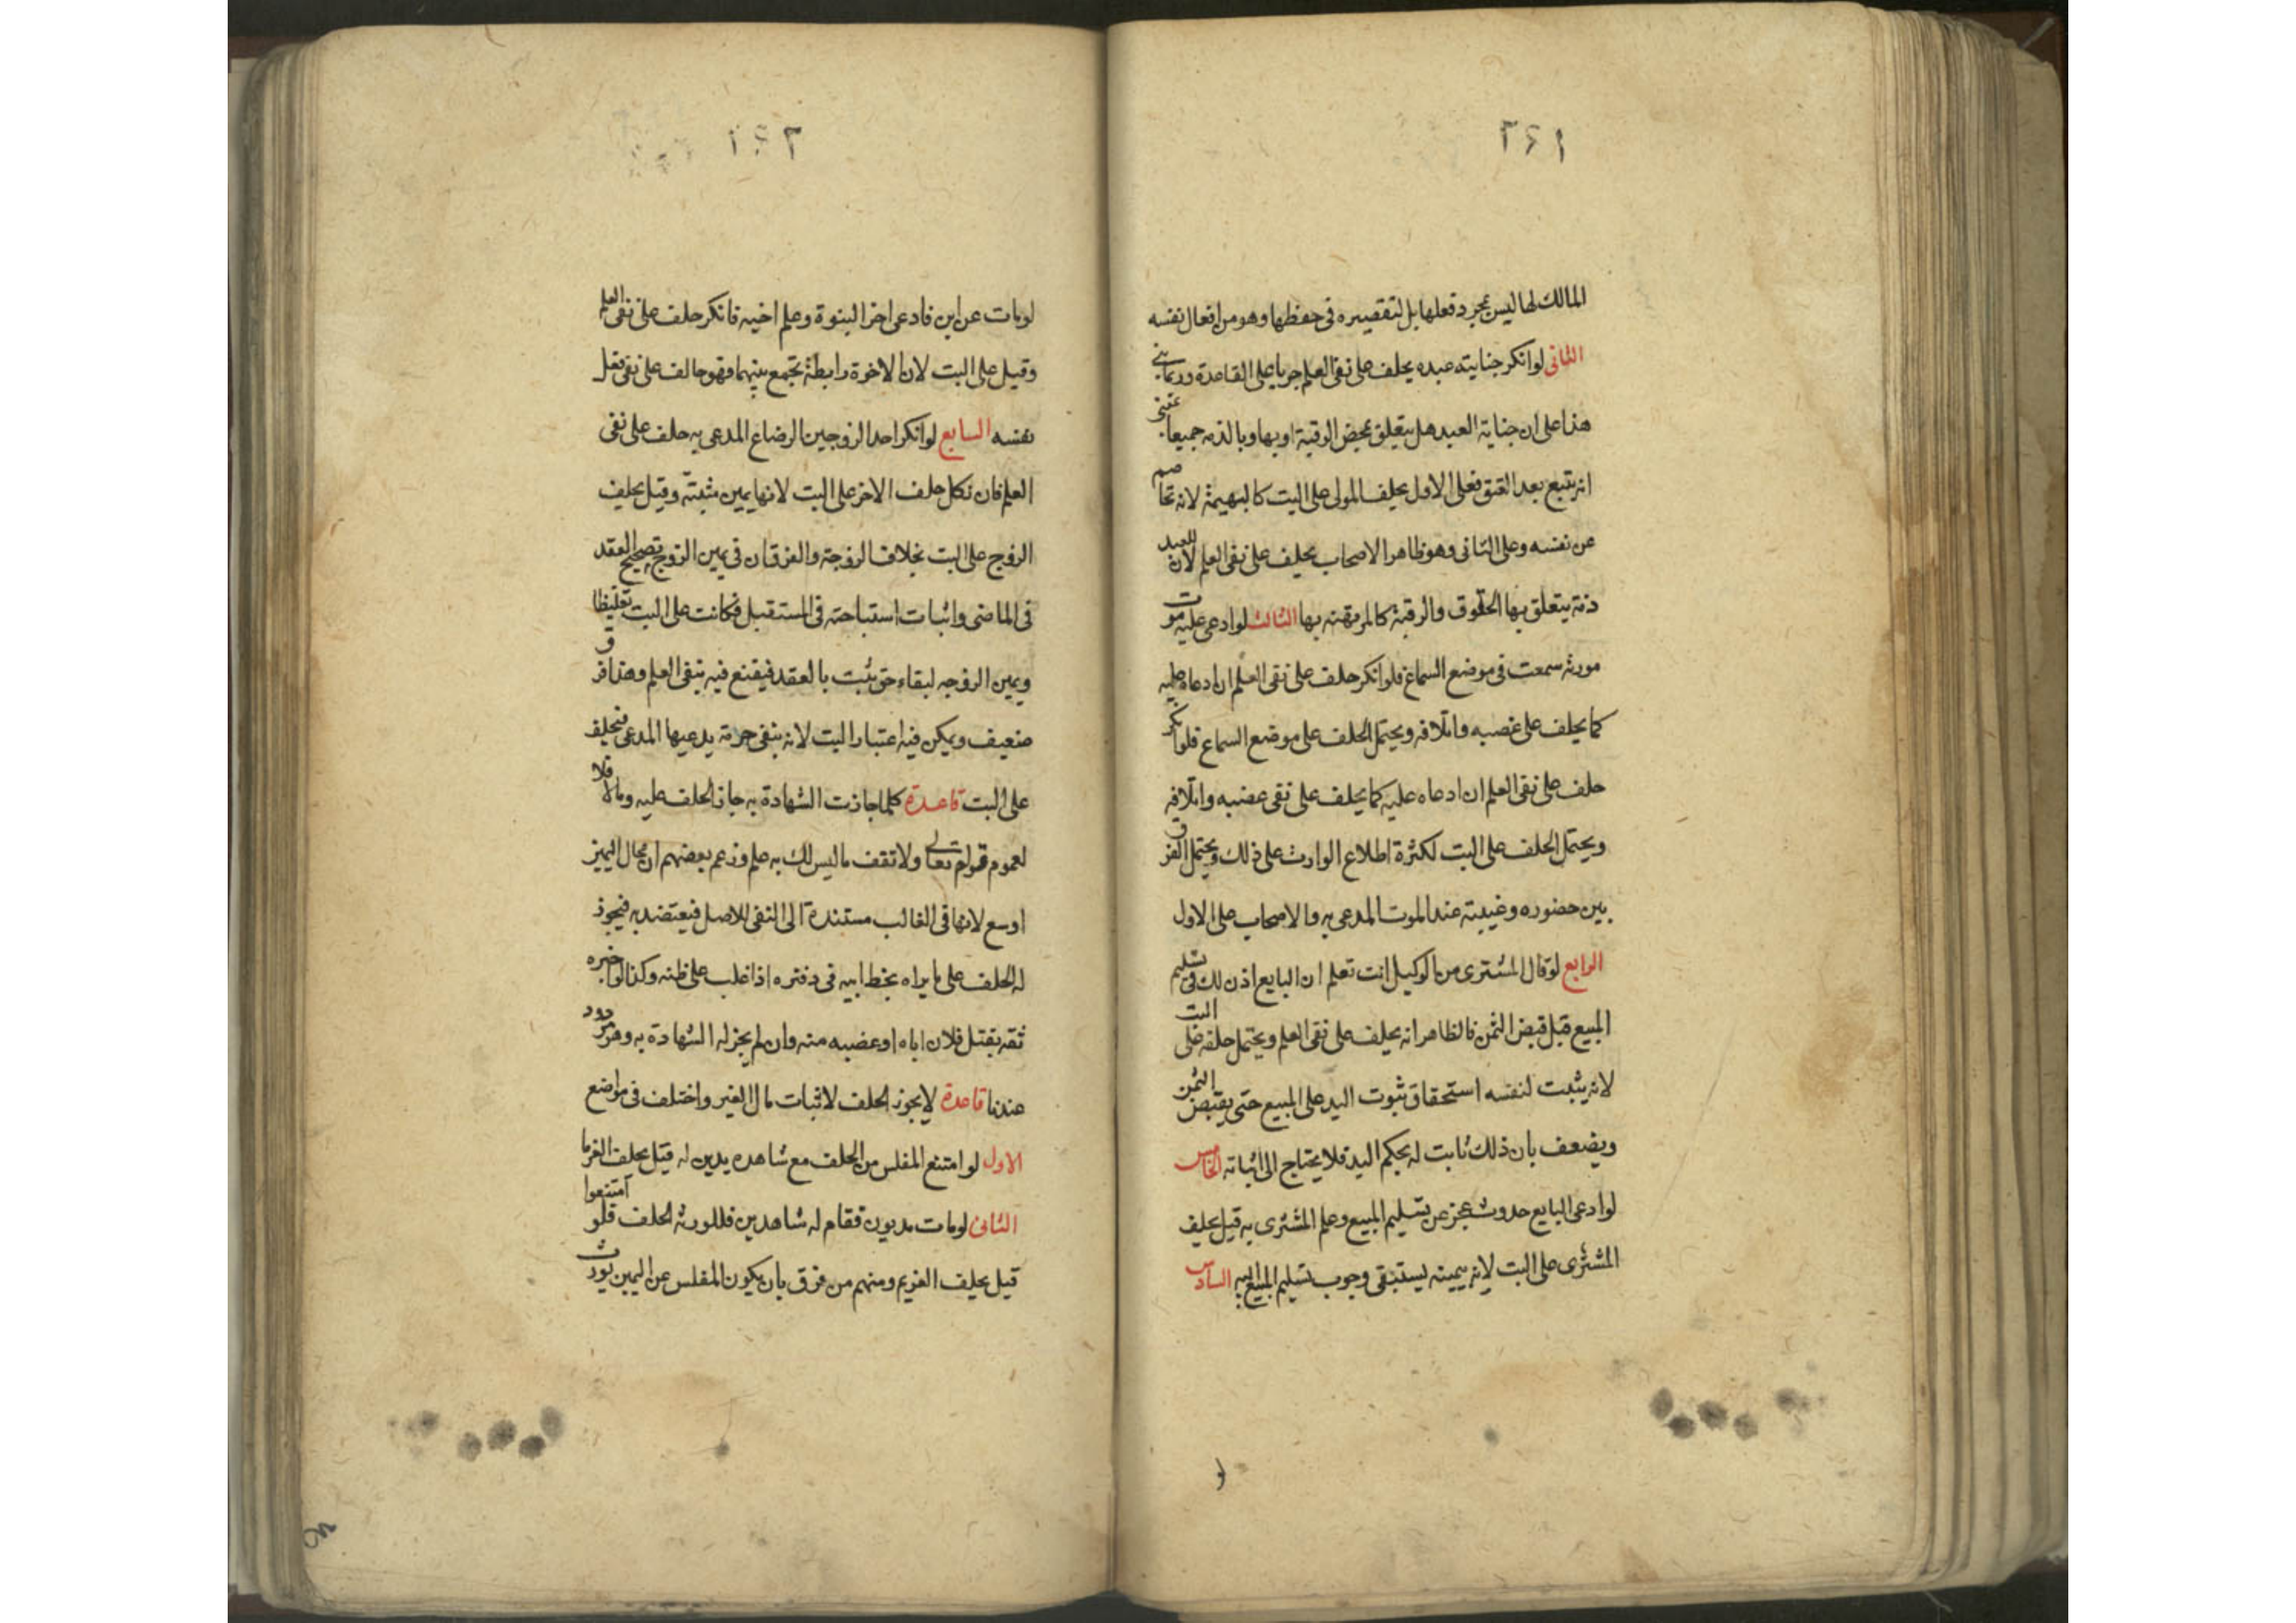 ٣٤١
المالك لها ليس بمجرد فعلها بل لتقصيره في حفظها وهو من افعال نفسه
الثاني لو انكر جناية عبده يحلف على نفي العلم جريا على القاعدة وربما بني
هذا على ان جناية العبد هل يتعلق بمحض الرقبة او بها وبالذمة جميعا
انه يتبع بعد العتق فعلى الاول يحلف المولى على البت كالبهيمة لانه تخاصم
عن نفسه وعلى الثاني وهو ظاهر الاصحاب يحلف على نفي العلم لان للعبد
ذمة يتعلق بها الحقوق والرقبة كالمرتهنه بها الثالث لو ادعى عليه موت
مورثه سمعت في موضع السماع فلو انكر حلف على نفي العلم ان ادعاه عليه
كما يحلف على غصبه واتلافه ويحتمل الحلف على موضع السماع فلو انكر
حلف على نفي العلم ان ادعاه عليه كما يحلف على نفي غصبه واتلافه
ويحتمل الحلف على البت لكثرة اطلاع الوارث على ذلك ويحتمل الفرق
بين حضوره وغيبته عند الموت المدعى به والاصحاب على الاول
الرابع لو قال المشترى من الوكيل انت تعلم ان البايع اذن لك في تسليم
المبيع قبل قبض الثمن فالظاهر انه يحلف على نفي العلم ويحتمل حلفه على البت
لانه يثبت لنفسه استحقاق ثبوت اليد على المبيع حتى يقبض الثمن
ويضعف بان ذلك ثابت له بحكم اليد فلا يحتاج الى اثباته الخامس
لو ادعى البايع حدوث عجز عن تسليم المبيع وعلم المشترى به قيل يحلف
المشترى على البت لانه بيمينه يستبقى وجوب تسليم المبيع اليه السادس
لو
لو مات عن ابن فادعى اخر البنوة وعلم اخيه فانكر حلف على نفي العلم
وقيل على البت لان الاخوة رابطة تجمع بينهما فهو حالف على نفي فعل
نفسه السابع لو انكر احد الزوجين الرضاع المدعى به حلف على نفي
العلم فان نكل حلف الاخر على البت لانها يمين مثبتة وقيل يحلف
الزوج على البت بخلاف الزوجة والفرقان في يمين الزوج تصحيح العقد
في الماضي واثبات استباحته في المستقبل فكانت على البت تغليظا
ويمين الزوجه لبقاء حق يثبت بالعقد فيقنع فيه بنفي العلم وهذا فرق
ضعيف ويمكن فيه اعتبار البت لانه ينفي حرمة يدعيها المدعي فيحلف
على البت قاعدة كلما جازت الشهادة به جاز الحلف عليه وما لا فلا
لعموم قوله تعالى ولا تقف ما ليس لك به علم وزعم بعضهم ان مجال اليمين
اوسع لانها في الغالب مستندة الى النفي للاصل فيعتضد به فيجوز
له الحلف على ما يراه بخط ابيه في دفتره اذا غلب على ظنه وكذا لو اخبره
ثقه بقتل فلان اباه او غصبه منه وان لم يجز له الشهادة به وهو مردود
عندنا قاعدة لا يجوز الحلف لاثبات مال الغير واختلف في مواضع
الاول لو امتنع المفلس من الحلف مع شاهده بدين له قيل يحلف الغرما
الثاني لو مات مديون فقام له شاهدين فللورثه الحلف فلو امتنعوا
قيل يحلف الغريم ومنهم من فرق بان يكون المفلس عن اليمين يورث